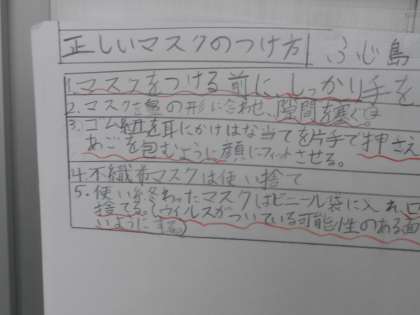 正しいマスクのつけ方 ふじ島
1.マスクをつける前に、しっかり手を
2.マスクを鼻の形に合わせ、隙間を塞ぐ
3.ゴム紐を耳にかけはな当てを片手で押さえ
あごを包むように顔にフィットさせる。
4.不織布マスクは使い捨て
5.使い終わったマスクはビニール袋に入れ、口
捨てる。(ウイルスがついている可能性のある面
いようにする)